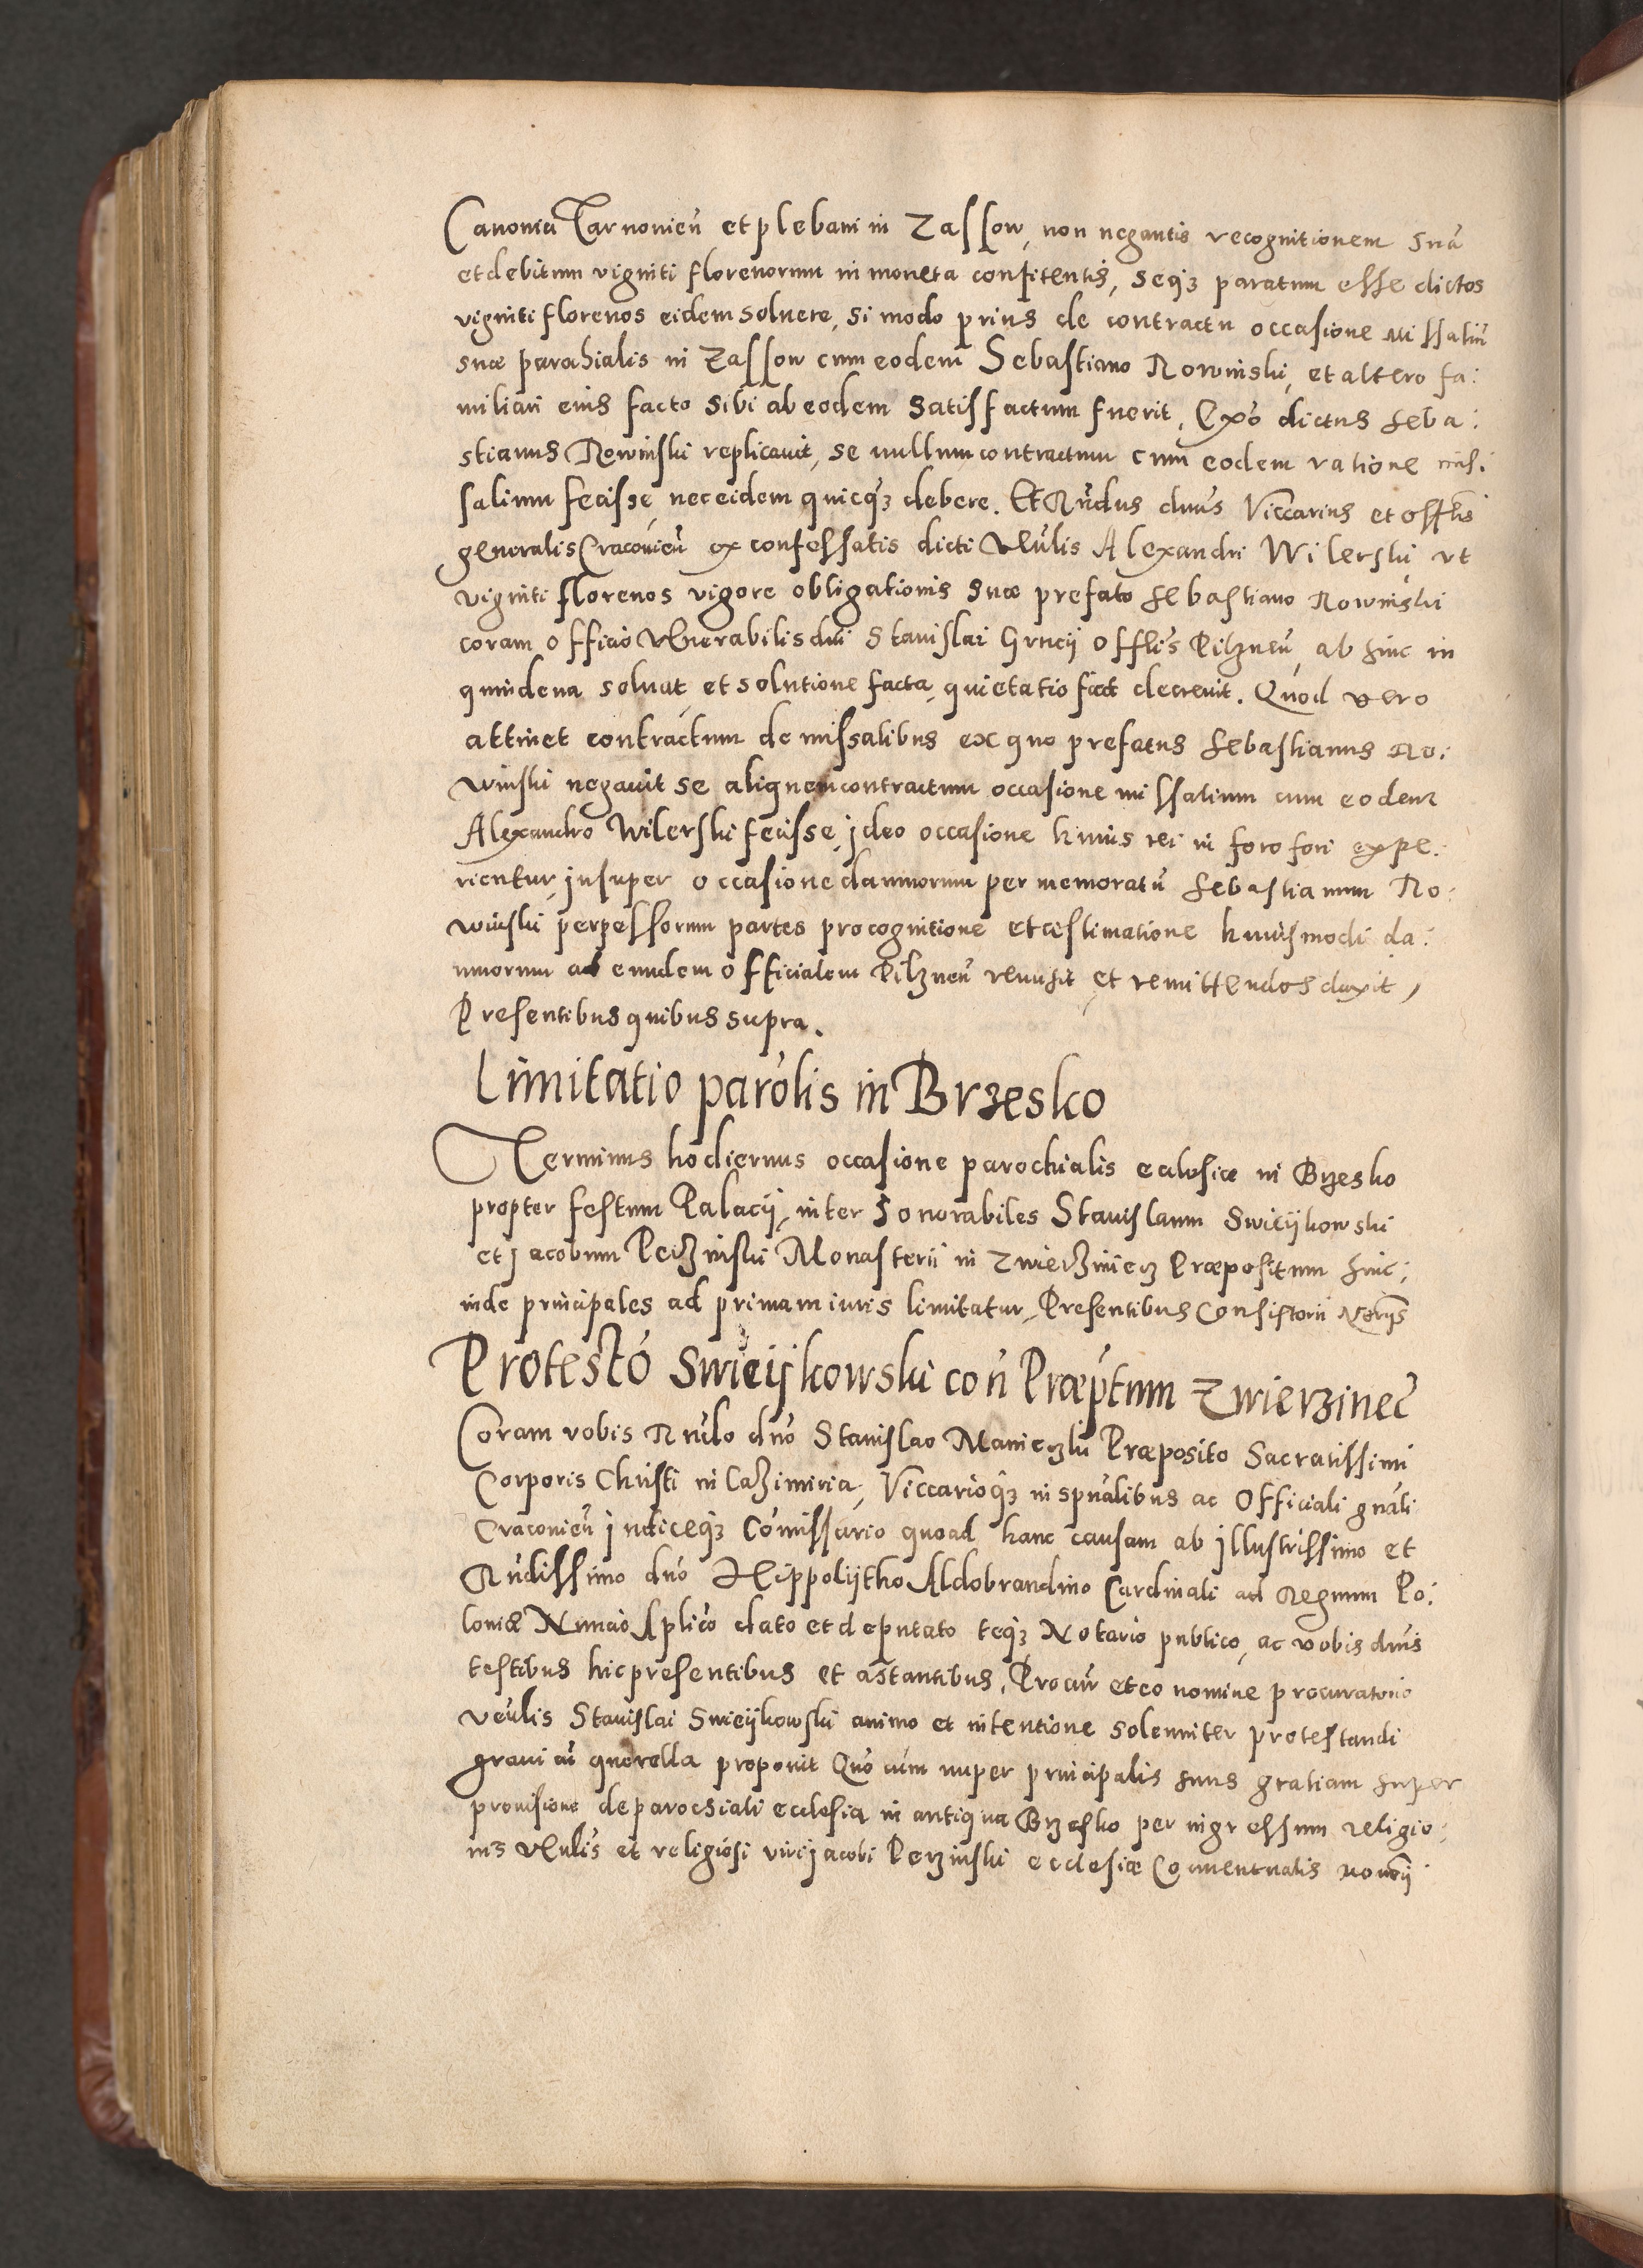 Canonici Tarnovień et plebani in Zassow, non negantis recognitionem suã
et debitum viginti florenorum in moneta confitentis, seqꝫ paratum esse dictos
viginti florenos eidem solvere, si modo prius de contractu occasione missaliũ
suæ parochialis in Zassow cum eodem Sebastiano Rowinski, et altero fa:
miliari eius facto sibi ab eodem satisfactum fuerit. Exõ dictus Seba:
stianus Rowinski replicavit, se nullum contractum cum eodem ratione mis:
salium fecisse, nec eidem quicqꝫ debere. Et Rñdus dnũs Viccarius et offlis̃
generalis Cracovień ex confessatis dicti Veñlis Alexandri Wilerski vt
viginti florenos vigore obligationis suæ prefato Sebastiano Rowinski
coram officio Venerabilis dni Stanislai Grucij Offlis̃ Pilzneń, ab hinc in
quindena solvat, et solutione facta, quietatio fiat decrevit. Quod vero
attinet contractum de missalibus ex quo prefatus Sebastianus Ro:
winski negavit se aliquem contractum occasione missalium cum eodem
Alexandro Wilerski fecisse, ideo occasione huius rei in foro fori expe:
rientur, insuper occasione damnorum per memoratũ Sebastianum Ro:
winski perpessorum partes pro cognitione et æstimatione huiusmodi da:
mnorum ad eundem officialem Pilzneń remisit et remittendos duxit,
Presentibus quibus supra.
Limitatio parõlis in Brzesko
Terminus hodiernus occasione parochialis ecclesiæ in Brzesko
propter festum Palacij, inter Honorabiles Stanislaum Swieijkowski
et Jacobum Perzinski Monasterii in Zwierziniecz Præpositum hinc:
inde principales ad primam iuris limitatur, Presentibus Consistorii Notrijs
Protestõ Swieijkowski coñ Præptum Zwierzineć
Coram vobis Rñdo dnõ Stanislao Manieczki Præposito Sacratissimi
Corporis Christi in Cazimiria, Viccarioqꝫ in spñalibus ac Officiali gnãli
Cracovień Judiceqꝫ Comissario quoad hanc causam ab Illustrissimo et
Rñdissimo dnõ Hippolijtho Aldobrandino Cardinali ad Regnum Po:
loniæ Nuncio Aplico dato et deputato teqꝫ Notario publico, ac vobis dnis
testibus hic presentibus et astantibus, Procur̃ et eo nomine procuratorio
Veñlis Stanislai Swieijkowski animo et intentione solenniter protestandi
gravi cũ querella proponit Quõ cum nuper principalis suus gratiam super
provisione de parochiali ecclesia in antiqua Brzesko per ingressum religio:
nis Veñlis et religiosi viri Jacobi Perzinski ecclesiæ Conventualis novitij